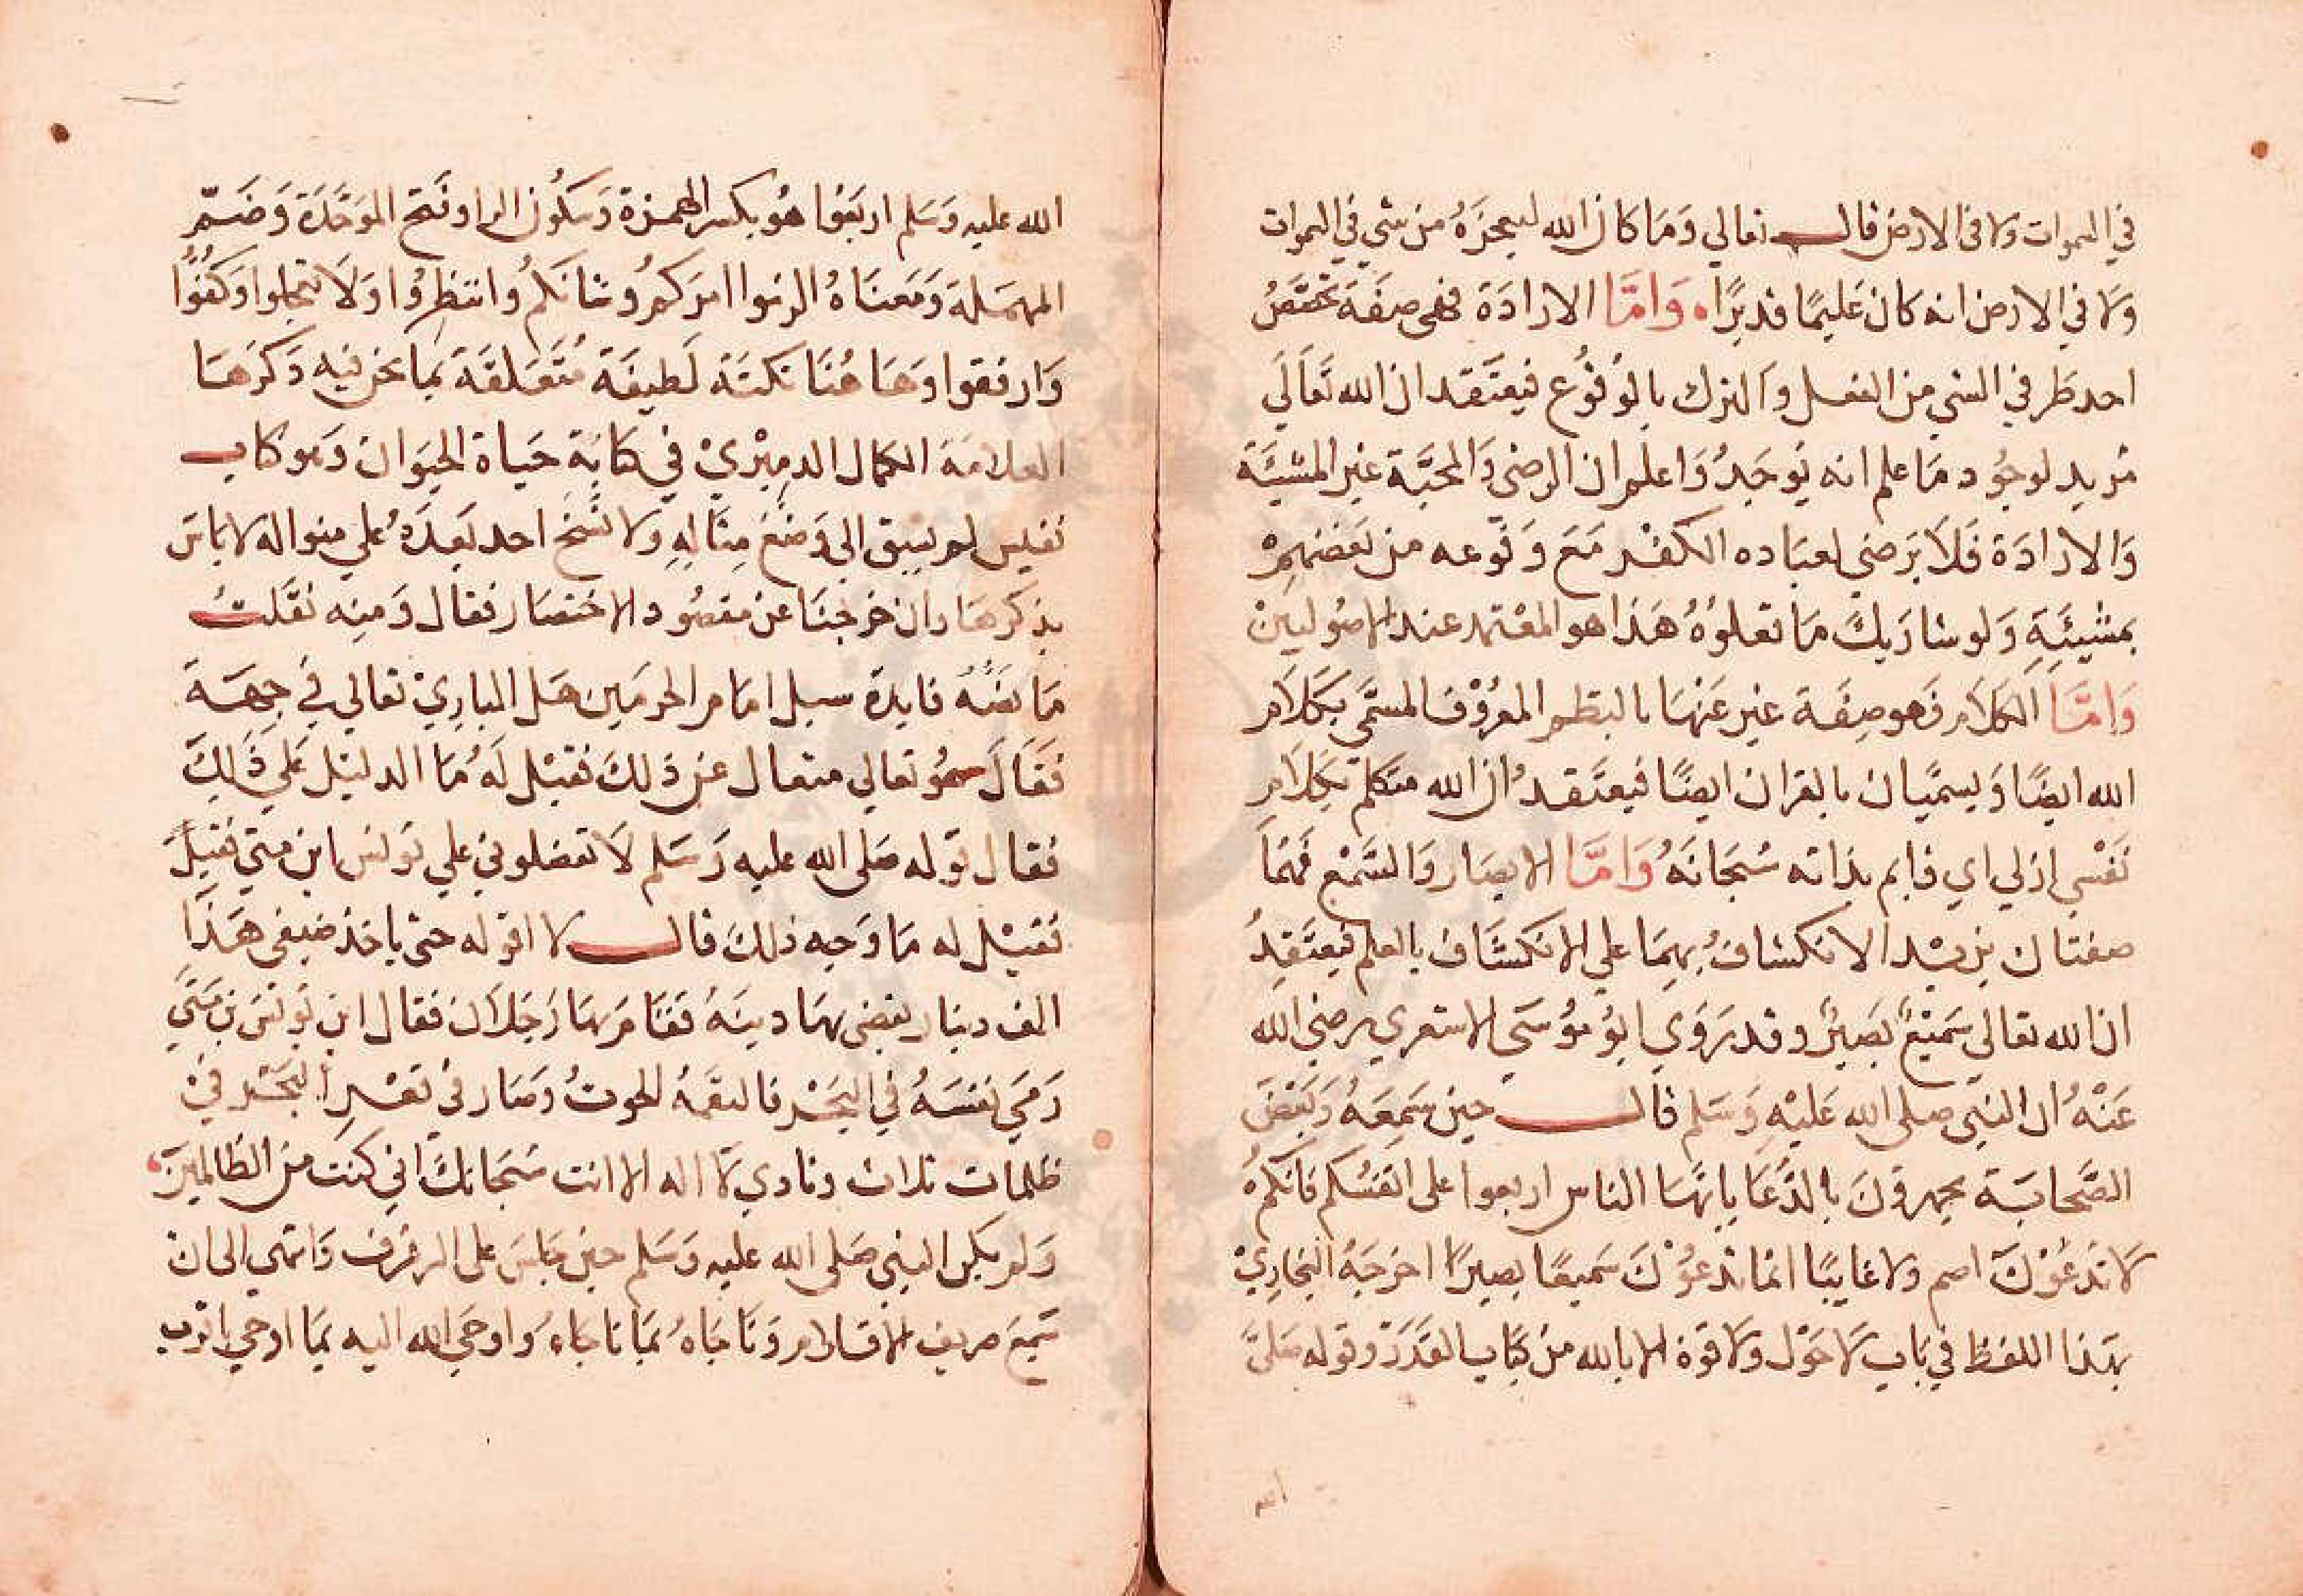 في السموات ولا في الارض قال تعالي وَمَا كان الله ليعجزَهُ من شي في السموات
ولا في الارض انه كان عَليمًا قديرًا وَامَّا الارادَة فهي صفَة تخصّصُ
احد طرفي الشي من الفعل وَالترك بالوُقُوع فيعتَقد ان الله تَعَالَي
مُريد لوجُود مَا علم انه يُوجَدُ وَاعلم ان الرضي وَالمحبَّة غير المشيَّة
وَالارادَة فَلاَ يَرضي لعبَاده الكفْر مَعَ وَقوعه من بَعضهِمْ
بمشيئَتِهِ وَلو شا رَبك مَا فعلوُهُ هَذا هو المعْتمد عند الاصُوليينْ
وَامَّا الكَلاَم فَهو صِفَة عبر عَنْهَا بالنظم المعرُوْف المسَمَّي بكَلاَم
الله ايضًا وَيسمّيَان بالقران ايضًا فيعتَقدُ ان الله متكلم بكَلاَم
نَفْسي ازلي اي قايم بذاته سُبحَانَهُ وَامَّا الابصَار وَالسَّمْع فَهُمَا
صفتان يزيْد الانكشافُ بهِمَا علي الانكشَاف بالعلم فيعتَقِدُ
ان الله تعالي سَميْعٌ بَصيرٌ وقد رَوَي ابوُ موُسَي الاشعري رضي الله
عَنْهُ ان النبي صلي الله عَليْهِ وَسَلم قال حين سَمِعَهُ وَبَعْضَ
الصَّحابَة يجهروُنَ بالدُّعَا يايُّهَا الناس اربعوا علي انفسُكم فَانكمُ
لاَ تَدعُوْنَ اصم ولا غايبًا انما تَدعُوْنَ سَميعًا بصيرًا اخرَجَهُ البخارِيْ
بهَذا اللفظ في بَاب لاَ حَوْل وَلاَ قوة الا بالله من كِتَاب القَدَر وقوله صَليَّ
الله
الله عليه وَسَلم اربَعُوا هُو بكسر الهمزة وَسكُون الرا وفَتح الموَحَّدَة وَضَمّ
المهمَلة وَمَعنَاهُ الزموا امرَكمُ وشانَكمُ وانتظِرُوا وَلاَ تعجلوا وَكفُّوُا
وَارفقوا وَهَا هُنَا نكتَة لَطيفَة مُتَعَلقَة بمَا نحن فيه ذكرَهَا
العلامَة الكمال الدمِيْرِيْ في كتَابَة حَياة الحيَوَان وَهو كتاب
نفيس لم يسبق الي وَضْع مِثَالِهِ وَلا نَسَخَ احد بَعدَهُ علي منواله لا باسَ
بذكرهَا وَان خرجنَا عن مقصُود الاختصَار فقال وَمنِه نقَلتُ
مَا نصَّهُ فايدة سيل امَام الحرمَين هَل البارِيْ تعالي في جِهَة
فَقَالَ هُو تعالي متعال عن ذَلكَ فقيْل لَهُ مَا الدليْل عَلي ذَلِكَ
فقال قوله صَلي الله عليه وَسَلم لاَ تفضلوني علي يُونس ابن متي فقيْلَ
فقيْل له مَا وَجه ذلكَ قال لا اقوله حتي ياخذ ضيفي هَذا
الف دينار يقضي بهَا دينَهُ فقَامَ بهَا رَجلاَن فقال ان يُونسَ بن مَتَي
رَمَي نفسَهُ في البحْر فالتقمَهُ الحوتُ وَصَار في قعْر البحْر فيْ
ظلمات ثلاث ونادي لاَ اله الا انت سُبحَانكَ اني كنت من الظالمين
وَلم يكن النبي صَلي الله عليه وَسَلم حين جَلسَ علي الرفرف وَانتهي الي ان
سَمِعَ صريف الاقلام وَنَاجَاهُ بمَا نَاجَاهُ وَاوحَي الله اليه بمَا اوحي اقرب